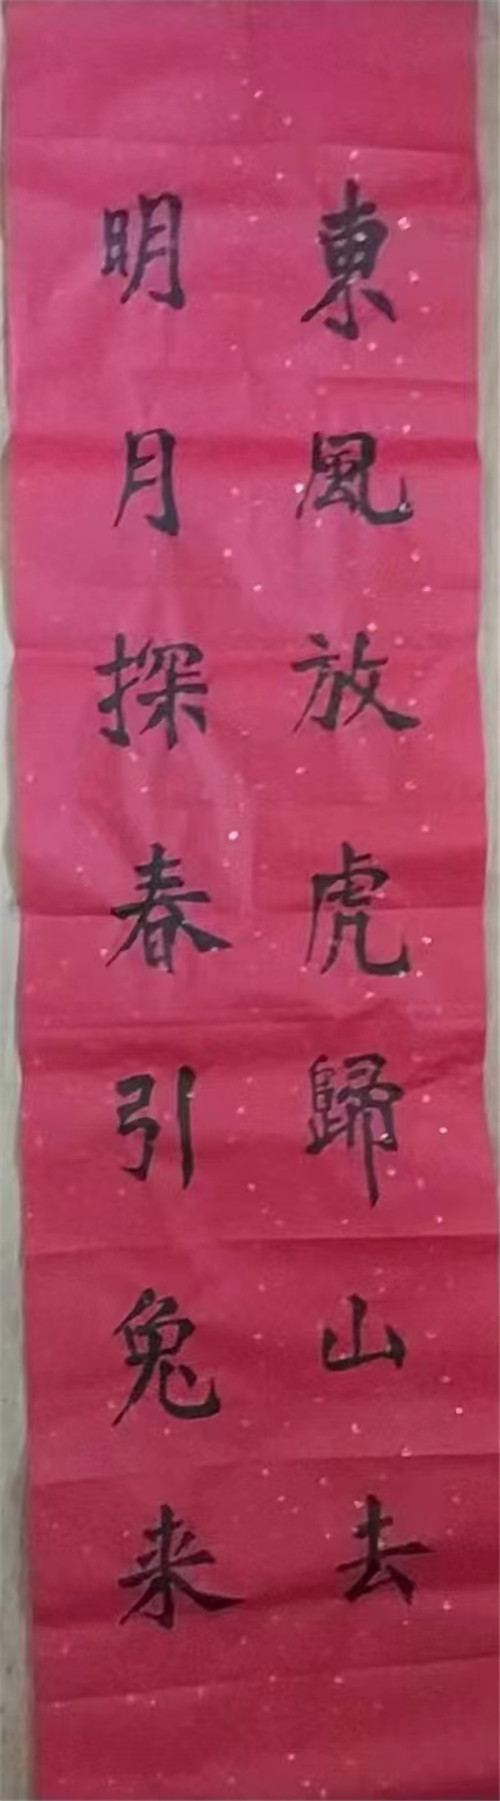 東風放虎歸山去
明月探春引兔来